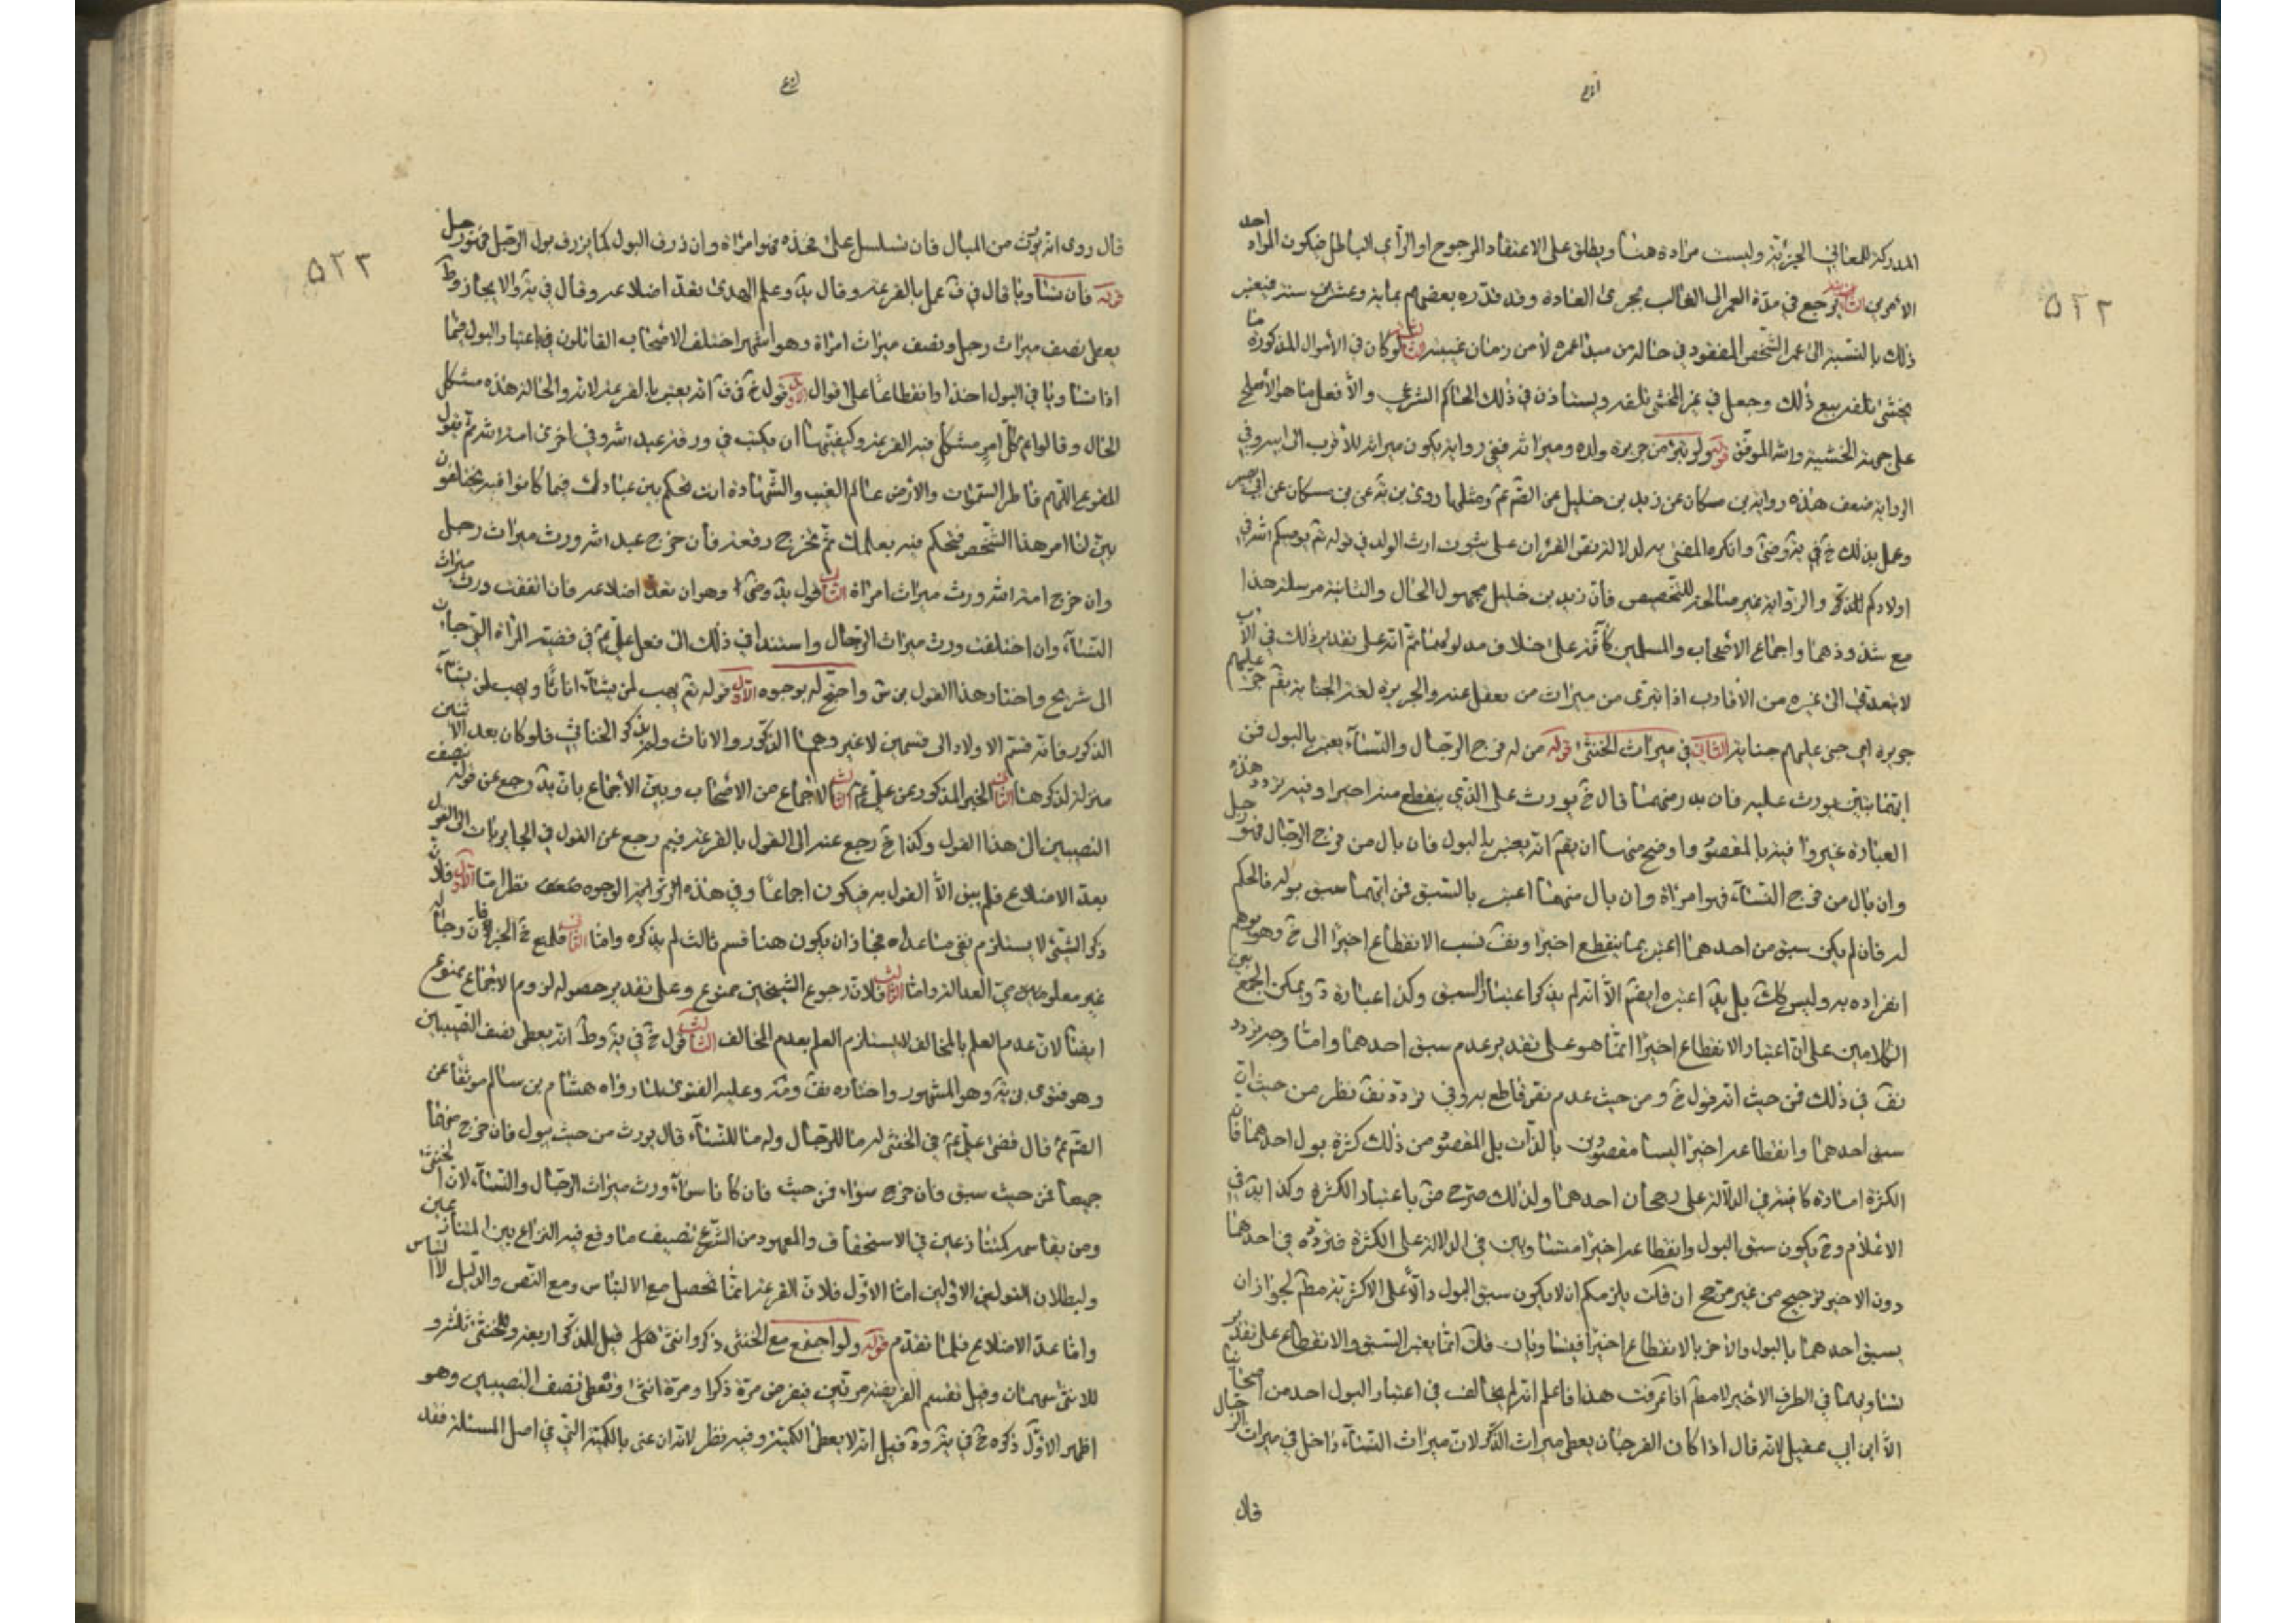 المدركة للمعاني الجزئية وليست مرادة هنا ويطلق على الاعتقاد المرجوح او الرأي الباطل فيكون المراد احد
الامرين يرجع في مدة العمر الى الغالب بمجرى العادة وقد قدره بعضهم بماية وعشرين سنة فيعتبر
ذلك بالنسبة الى عمر الشخص المفقود في حالة من مبدا عمره لا من زمان غيبته الثالث لو كان في الأموال المذكورة ما
يخشى تلفه بيع ذلك وجعل في عز يخشى تلفه ويستاذن في ذلك الحاكم الشرعي والا فعل ما هو الأصلح
على جهة الخشية والله الموفق قوله ولو تبرء من جريرة ولده وميراثه ففي رواية يكون ميراثه للأقرب الى ابيه وفي
الرواية ضعف هذه رواية بن مسكان عن زيد بن خليل عن الصم عم ومثلها روى بن بة عن بن مسكان عن ابي بصير
وعمل بذلك خ في ية وضى وانكره المفتي به لدلالة نص القران على ثبوت ارث الولد في قوله تع يوصيكم الله في
اولادكم للذكر والرواية غير صالحة للتخصيص فان زيد بن خليل مجهول الحال والثانية مرسلة هذا
مع شذوذهما واجماع الاصحاب والمسلمين كافة على خلاف مدلولهما ثم انه على تقدير ذلك في الأب
لا يتعدى الى غيره من الأقارب اذا تبرى من ميراث من يعقل عنه والجريرة لغة الجناية يقم جرى عليهم
جريرة اى جنى عليهم جناية الثاني في ميراث الخنثى قوله من له فرج الرجال والنساء يعتبر بالبول فمن
ايهما يبين يورث عليه فان بدر منهما قال خ يورث على الذي ينقطع منه اخيرا وفيه تردد هذه
العبارة غيروا فيه بالمقصود واوضح منها ان يقم انه يعتبر بالبول فان بال من فرج الرجال فهو رجل
وان بال من فرج النساء فهو امراة وان بال منهما اعتبر بالسبق فمن ايهما سبق بوله فالحكم
له فان لم يكن سبق من احدهما اعتبر بما ينقطع اخيرا ونسب الانقطاع اخيرا الى خ وهو يوهم
انفراده به وليس كك بل اعتبره ايضم الا انه لم يذكر اعتبار السبق وكذا عبارة ويمكن الجمع بين
الكلامين على ان اعتبار الانقطاع اخيرا انما هو على تقدير عدم سبق احدهما واما وجه تردد
في ذلك فمن حيث انه قول خ ومن حيث عدم نص قاطع به وفي تردد نظر من حيث ان
سبق احدهما وانقطاعه اخيرا ليسا مقصودين بالذات بل المقصود من ذلك كثرة بول احدهما فان
الكثرة امارة كافية في الدلالة على رجحان احدهما ولذلك صرح باعتبار الكثرة وكذا في
الاعلام وح يكون سبق البول وانقطاعه اخيرا متساويين في الدلالة على الكثرة فتردده في احدهما
دون الاخر ترجيح من غير مرجح ان قلت يلزمكم ان لا يكون سبق البول دالا على الاكثرية مطم لجواز ان
يسبق احدهما بالبول والاخر بالانقطاع اخيرا فيتساويان قلت انما يعتبر السبق والانقطاع على تقدير
تساويهما في الطرف الاخير لا مطم اذا عرفت هذا فاعلم انه لم يخالف في اعتبار البول احد من اصحابنا
الا ابن ابي عقيل لانه قال اذا كان الفرجان يعطى ميراث الذكر لان ميراث النساء داخل في ميراث الرجال
قال
٥٢٢
قال روى انه يورث من المبال فان تسلسل على فخذه فهو امراة وان ذرف البول كما يزرف بول الرجل فهو رجل
قوله فان تساويا قال في ف عمل بالقرعة وقال وعلم الهدى تعد اضلاعه وقال في ية والايجاز وط
يعطى نصف ميراث رجل ونصف ميراث امراة وهو اشهر اختلف الاصحاب القائلون باعتبار البول فيما
اذا تساويا في البول اخذا وانقطاعا على اقوال الاول قول خ في ف انه يعتبر بالقرعة لانه والحالة هذه مشكل
الحال وقالوا عم كل امر مشكل فيه القرعة وكيفيتها ان يكتب في ورقة عبد الله وفي اخرى امة الله ثم يقول
المقرع اللهم فاطر السموات والارض عالم الغيب والشهادة انت تحكم بين عبادك فيما كانوا فيه يختلفون
بين لنا امر هذا الشخص فنحكم فيه بعلمك ثم تخرج رقعة فان خرج عبد الله ورث ميراث رجل
وان خرج امة الله ورث ميراث امراة الثاني قول وضى وهو ان تعد اضلاعه فان اتفقت ورث ميراث
النساء وان اختلفت ورث ميراث الرجال واستندا في ذلك الى فعل علي عم في قضية المراة التي جاءت
الى شريح واختار هذا القول بن س واحتج له بوجوه الأول قوله تع يهب لمن يشاء اناثا ويهب لمن يشاء
الذكور فانه قسم الاولاد الى قسمين لا غير وهما الذكور والاناث ولم يذكر الخناثى فلو كان بعد الاثنين
منزلة لذكرها الثاني الخبر المذكور عن علي عم الثالث الاجماع من الاصحاب وبين الأجماع بان رجع عن قوله بنصف
النصيبين الى هذا القول وكذا خ رجع عنه الى القول بالقرعة فيم رجع عن القول في الحايريات الى القول
بعد الاضلاع فلم يبق الا القول به فيكون اجماعا وفي هذه الوجوه نظر اما الأول فلان
ذكر الشيء لا يستلزم نفى ما عداه فجاز ان يكون هنا قسم ثالث لم يذكره واما الثاني فلمنع الخبر فان رجاله
غير معلومين العدالة واما الثالث فلان رجوع الشيخين ممنوع وعلى تقدير حصوله لزوم الاجماع ممنوع
ايضا لان عدم العلم بالمخالف لا يستلزم العلم بعدم المخالف الثالث قول خ في ية وط انه يعطى نصف النصيبين
وهو فتوى بن بة وهو المشهور واختاره وعليه الفتوى لما رواه هشام بن سالم موثقا عن
الصم عم قال قضى علي عم في الخنثى له ما للرجال وله ما للنساء قال يورث من حيث يبول فان خرج منهما
جميعا فمن حيث سبق فان خرج سواء فمن حيث فان كانا سواء ورث ميراث الرجال والنساء لان الخنثى
ومن يقاسمه كمتنازعين في الاستحقاق والمعهود من الشرع تنصيف ما وقع فيه النزاع بين المتنازعين
ولبطلان القولين الاولين اما الاول فلان القرعة انما تحصل مع الالتباس ومع النص والدليل لا التباس
واما عد الاضلاع فلما تقدم قوله ولو اجتمع مع الخنثى ذكر وانثى قيل للذكر اربعة وللخنثى ثلثة و
للانثى سهمان وقيل تقسم الفريضة مرتين فيفرض مرة ذكرا ومرة انثى وتعطى نصف النصيبين وهو
اظهر الاول ذكره خ في ية وقيل انه لا يعطى الكمية وفيه نظر لانه ان عنى بالكمية التي في اصل المسئلة فقد
٥٢٣